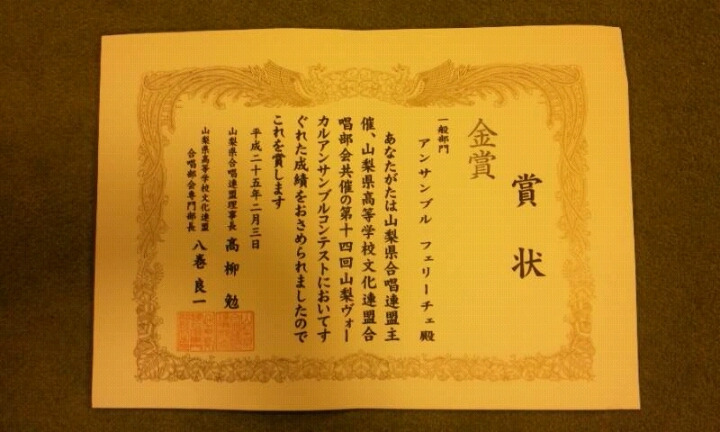 賞状
金賞
一般部門
アンサンブル フェリーチェ殿
あなたがたは山梨県合唱連盟主
催、山梨県高等学校文化連盟合
唱部会共催の第十四回山梨ヴォー
カルアンサンブルコンテストにおいてす
ぐれた成績をおさめられましたので
これを賞します
平成二十五年二月三日
山梨県合唱連盟理事長 高柳 勉
山梨県高等学校文化連盟
合唱部会専門部長 八巻 良一